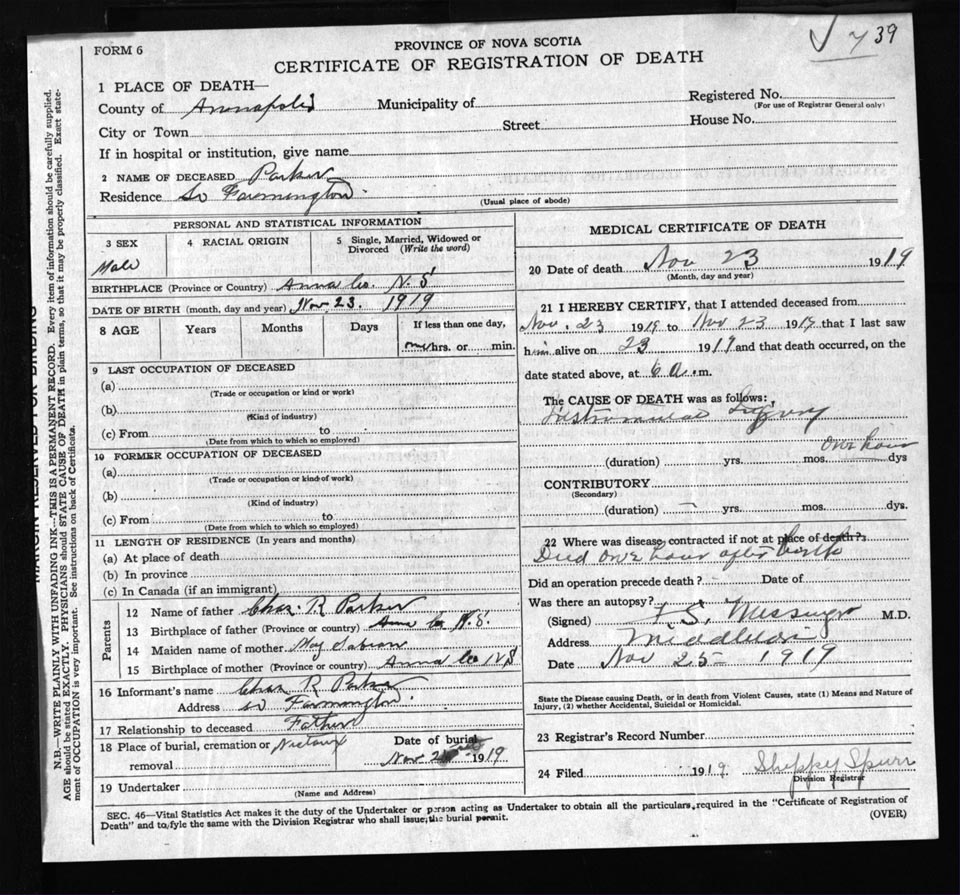 39
FORM 6
PROVINCE OF NOVA SCOTIA
CERTIFICATE OF REGISTRATION OF DEATH
N.B.—WRITE PLAINLY WITH UNFADING INK—THIS IS A PERMANENT RECORD. Every item of information should be carefully supplied.
AGE should be stated EXACTLY. PHYSICIANS should STATE CAUSE OF DEATH in plain terms, so that it may be properly classified. Exact state-
ment of OCCUPATION is very important. See instructions on back of Certificate.
MARGIN RESERVED FOR BINDING
1 PLACE OF DEATH—
County of Annapolis Municipality of Registered No.
(For use of Registrar General only)
City or Town Street House No.
If in hospital or institution, give name
2 NAME OF DECEASED Parker
Residence So Farmington
(Usual place of abode)
PERSONAL AND STATISTICAL INFORMATION
3 SEX 4 RACIAL ORIGIN 5 Single, Married, Widowed or
Divorced (Write the word)
Male
BIRTHPLACE (Province or Country) Anna Co. N.S
DATE OF BIRTH (month, day and year) Nov 23. 1919
8 AGE Years Months Days If less than one day,
one hrs. or min.
9 LAST OCCUPATION OF DECEASED
(a)
(Trade or occupation or kind or work)
(b)
(Kind of industry)
(c) From to
(Date from which to which so employed)
10 FORMER OCCUPATION OF DECEASED
(a)
(Trade or occupation or kind of work)
(b)
(Kind of industry)
(c) From to
(Date from which to which so employed)
11 LENGTH OF RESIDENCE (In years and months)
(a) At place of death
(b) In province
(c) In Canada (if an immigrant)
Parents
12 Name of father Chas. R Parker
13 Birthplace of father (Province or country) Anna Co N.S.
14 Maiden name of mother May
15 Birthplace of mother (Province or country) Anna Co NS
16 Informant's name Chas R Parker
Address So Farmington
17 Relationship to deceased Father
18 Place of burial, cremation or Nictaux Date of burial
removal Nov 1919
19 Undertaker
(Name and Address)
MEDICAL CERTIFICATE OF DEATH
20 Date of death Nov 23 1919
(Month, day and year)
21 I HEREBY CERTIFY, that I attended deceased from
Nov. 23 1919 to Nov 23 1919 that I last saw
him alive on 23 1919 and that death occurred, on the
date stated above, at 6 a. m.
The CAUSE OF DEATH was as follows:
Instrumental Injury
one hour
(duration) yrs. mos. dys
CONTRIBUTORY
(Secondary)
(duration) — yrs. mos. dys.
22 Where was disease contracted if not at place of death?
Died one hour after birth
Did an operation precede death? - Date of
Was there an autopsy?
(Signed) F. S. Messenger M.D.
Address Middleton
Date Nov 25 1919
State the Disease causing Death, or in death from Violent Causes, state (1) Means and Nature of
Injury, (2) whether Accidental, Suicidal or Homicidal.
23 Registrar's Record Number
24 Filed 1919 Sheppy Spurr
Division Registrar
SEC. 46—Vital Statistics Act makes it the duty of the Undertaker or person acting as Undertaker to obtain all the particulars required in the "Certificate of Registration of
Death" and to fyle the same with the Division Registrar who shall issue the burial permit.
(OVER)